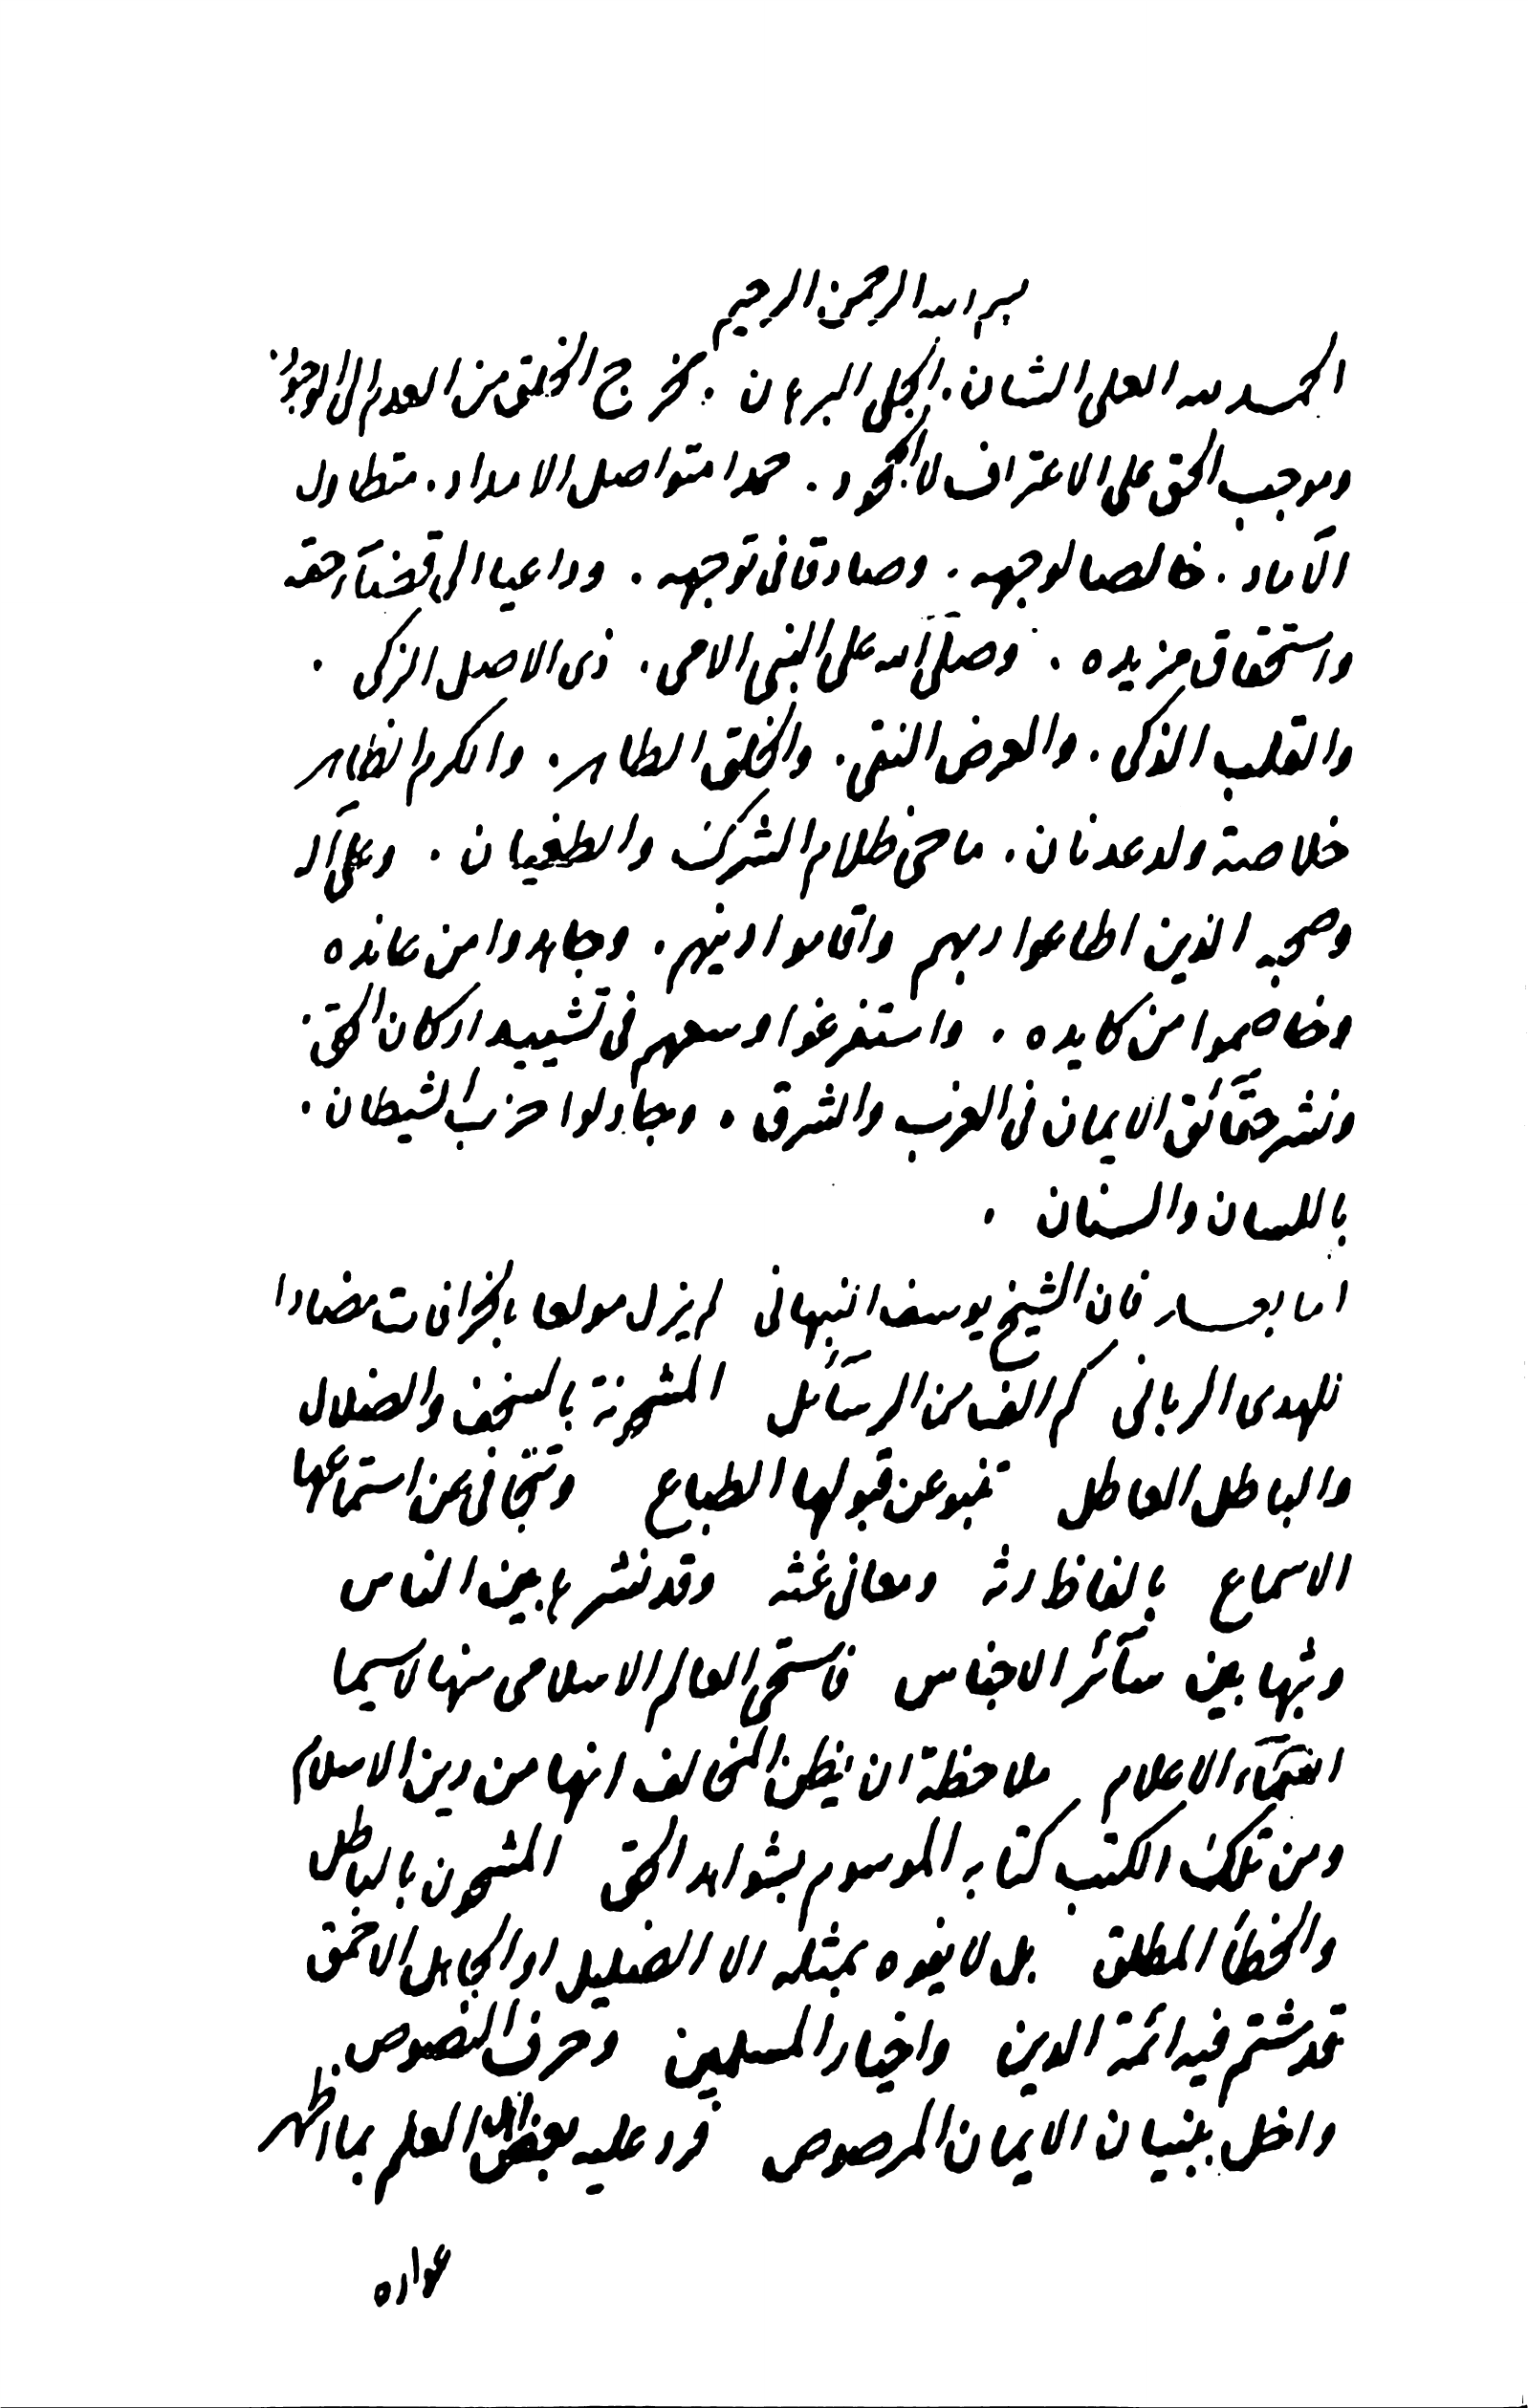 بسم الله الرحمن الرحيم
الحمد لله العلي الشان. الجلي البرهان. مخرج الخلق من العدم الى الوجود.
وموجب الحق على الاعتراف لا الجحود. حمدا متواصل الامداد. متطاول
الآماد. خالصا لوجهه. وصادقا في توجهه. وداعيا الى قضآء حقه
واستحقاق مزيده. وصلّى الله على النبي الامي. ذي الاصل الزكي.
والقلب الذكي. والعرض النقي. والخلق الطاهر. والكرم الظاهر
خلاصة ولد عدنان. ماحي ظلام الشرك والطغيان. وعلى آله
وصحبه الذين اطاعوا ربهم واقاموا دينهم. وجاهدوا من عانده
وخاصموا من كايده. واستفرغوا وسعهم في تشييد اركان الحق.
ونشر حقآئق الايمان في الغرب والشرق. وجادلوا حزب الشيطان.
باللسان والسنان.
اما بعد فان الشيخ يوسف النبهاني لم يزل مولعا بالخرافات مضادا
للهدى الرباني كم الف من الرسآئل المشحونة بالسخف والضلال
والباطل العاطل تنبو عن قبولها الطباع وتتجافى عن استماعها
الاسماع بالفاظ رثه ومعان غثه وقد نشرها بين الناس
وبثها بين سآئر الاجناس فاستحى العالم الاسلامي منها لاسيما
العلمآء الاعلام ملاحظة ان يظن المخالف انها من دين الاسلام
ومن تلك الكتب كتابه الموسوم بشواهد الحق المشحون بالباطل
والخطأ المطلق بل لا يفوه بمثله الا الضليل او الجاهل الاحمق
قد شتم فيه ائمة الدين واخيار المسلمين وحرف النصوص
واخل ببنيان الايمان المرصوص فرد عليه بعض اهل العلم بما اظهر
عواره